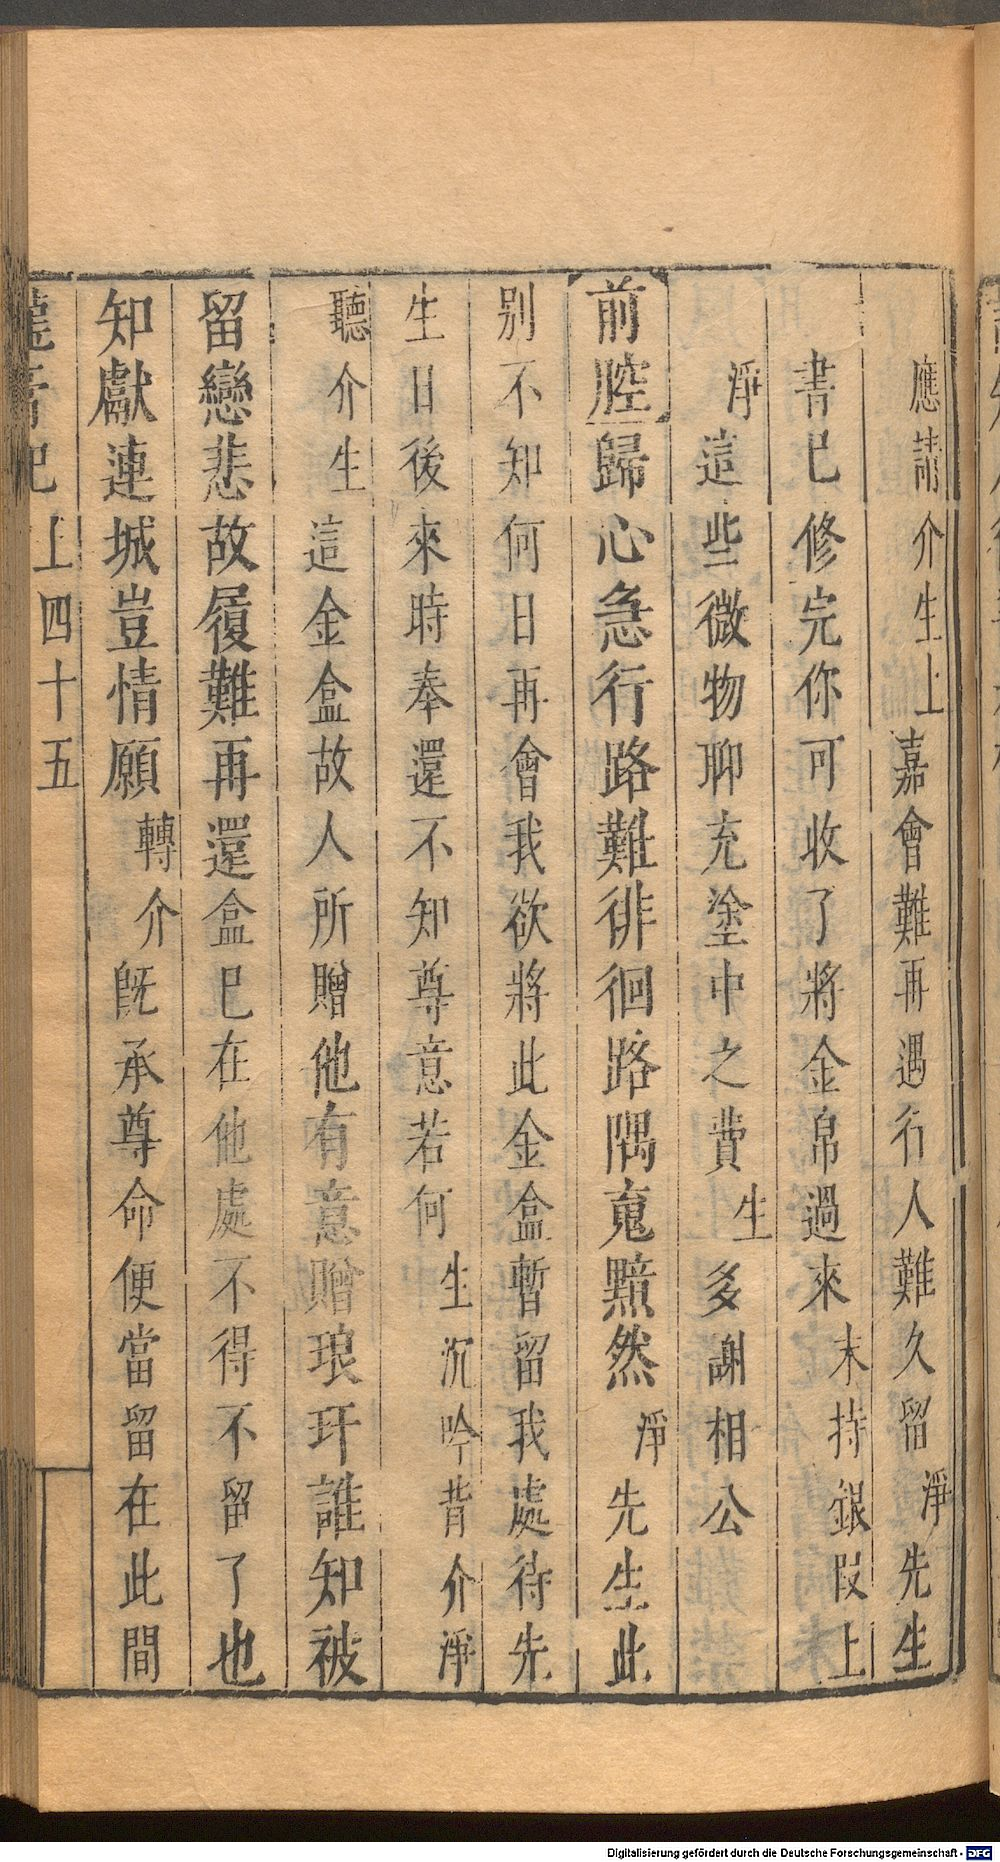 應請介生上嘉會難再遇行人難久留淨先生
書已修完你可收了將金帛過來末持銀段上
淨這些微物聊充塗中之費生多謝相公
前腔歸心急行路難徘徊路隅䰟黯然淨先生此
别不知何日再會我欲將此金盒暫留我處待先
生日後來時奉還不知尊意若何生沉吟背介淨
聽介生這金盒故人所贈他有意贈琅玕誰知被
留戀悲故履難再還盒已在他處不得不留了也
知獻連城豈情願轉介既承尊命便當留在此間
記 上四十五
Digitalisierung gefördert durch die Deutsche Forschungsgemeinschaft - DFG